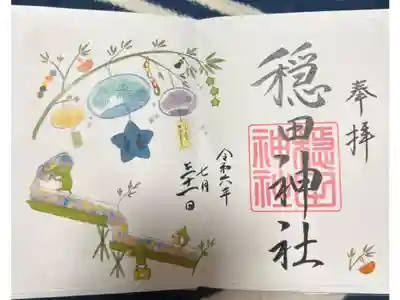 奉拝
穏田神社
穏田
神社
令和六年
七月
三十一日